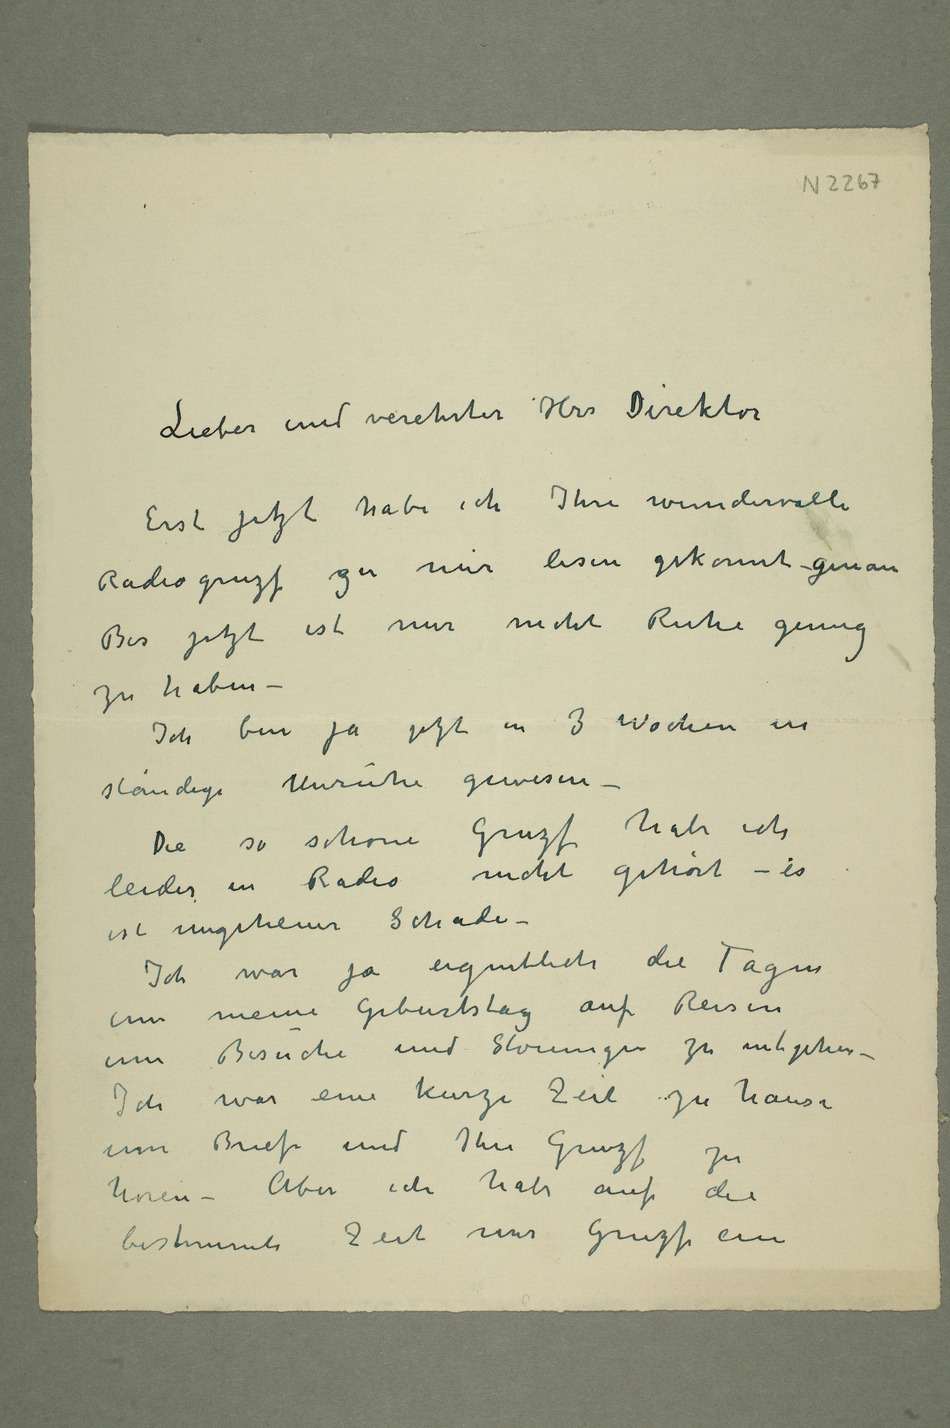 N 2267
Lieber und verehrter Herr Direktor
Erst jetzt habe ich Ihre wundervolle
Radiogruzf zu mir lesen gekonnt – genau
Bis jetzt ist mir nicht Ruhe genug
zu haben –
Ich bin ja jetzt in 3 Wochen in
ständige Unruhe gewesen –
Die so schöne Gruzf habe ich
leider in Radio nicht gehört – es
ist ungeheuer Schade –
Ich war ja eigentlich die Tagen
um meine Geburtstag auf Reisen
um Besuche und Störungen zu entgehen –
Ich war eine kurze Zeit zu hause
um Briefe und Ihre Gruzf zu
hören – Aber ich habe auf die
bestimmte Zeit nur Gruzfe